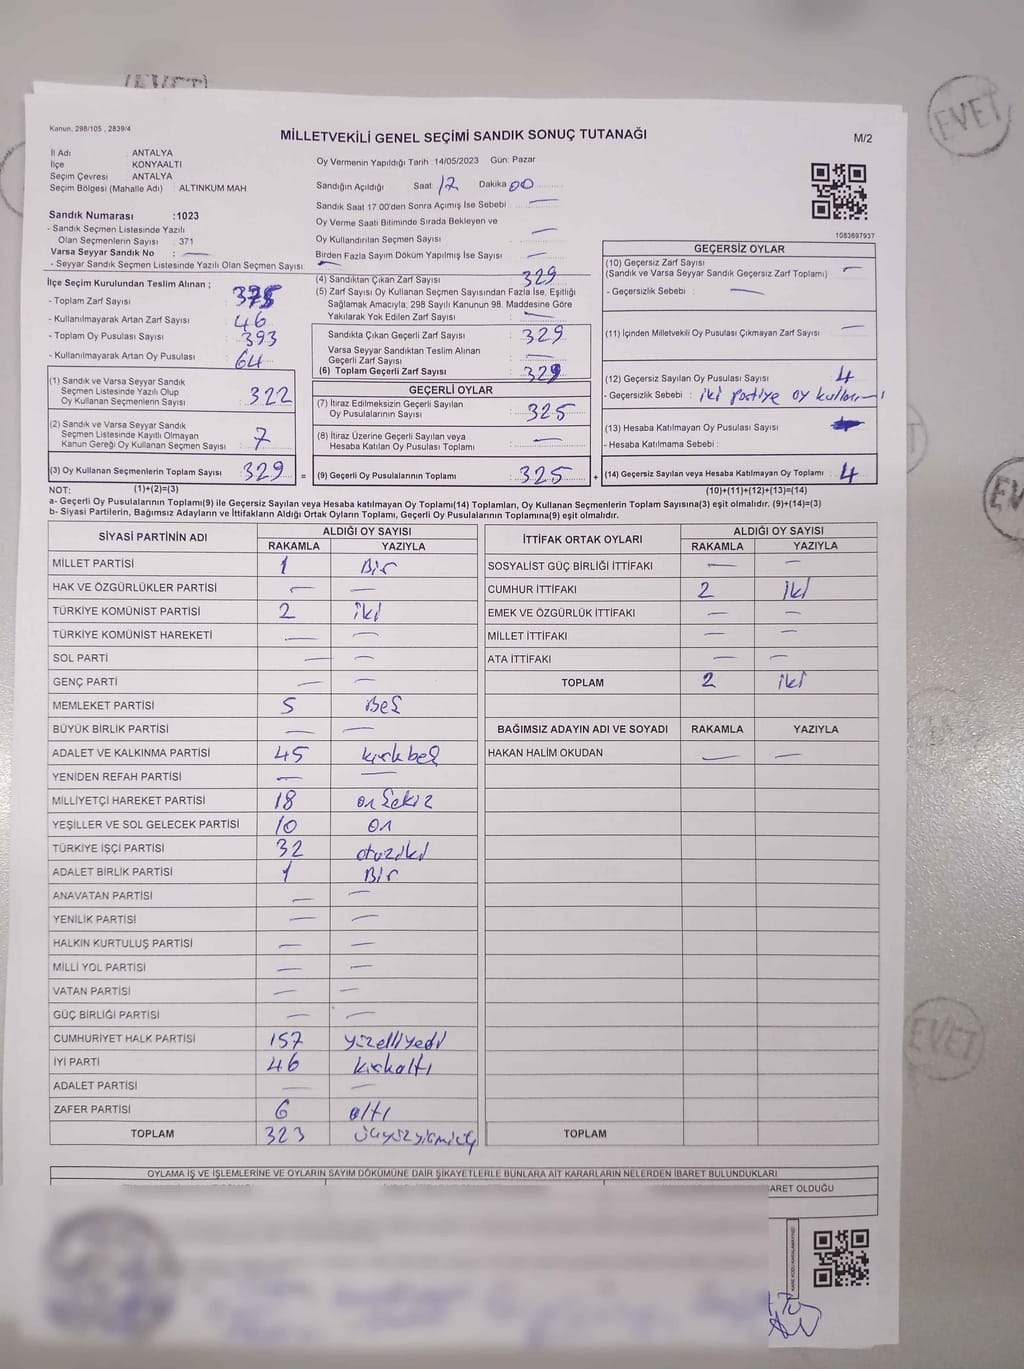 (EVET)
EVET
Kanun, 298/105 , 2839/4
MİLLETVEKİLİ GENEL SEÇİMİ SANDIK SONUÇ TUTANAĞI
M/2
İl Adı : ANTALYA
İlçe : KONYAALTI
Seçim Çevresi : ANTALYA
Seçim Bölgesi (Mahalle Adı) : ALTINKUM MAH
Sandık Numarası :1023
- Sandık Seçmen Listesinde Yazılı
Olan Seçmenlerin Sayısı : 371
Varsa Seyyar Sandık No : —
- Seyyar Sandık Seçmen Listesinde Yazılı Olan Seçmen Sayısı : —
Oy Vermenin Yapıldığı Tarih : 14/05/2023 Gün: Pazar
Sandığın Açıldığı Saat 17 Dakika 00
Sandık Saat 17:00'den Sonra Açımış İse Sebebi —
Oy Verme Saati Bitiminde Sırada Bekleyen ve
Oy Kullandırılan Seçmen Sayısı —
Birden Fazla Sayım Döküm Yapılmış İse Sayısı —
1083697937
İlçe Seçim Kurulundan Teslim Alınan ;
- Toplam Zarf Sayısı : 375
- Kullanılmayarak Artan Zarf Sayısı : 46
- Toplam Oy Pusulası Sayısı : 393
- Kullanılmayarak Artan Oy Pusulası : 64
(1) Sandık ve Varsa Seyyar Sandık
Seçmen Listesinde Yazılı Olup
Oy Kullanan Seçmenlerin Sayısı : 322
(2) Sandık ve Varsa Seyyar Sandık
Seçmen Listesinde Kayıtlı Olmayan
Kanun Gereği Oy Kullanan Seçmen Sayısı : 7
(3) Oy Kullanan Seçmenlerin Toplam Sayısı : 329
(4) Sandıktan Çıkan Zarf Sayısı : 329
(5) Zarf Sayısı Oy Kullanan Seçmen Sayısından Fazla İse, Eşitliği
Sağlamak Amacıyla; 298 Sayılı Kanunun 98. Maddesine Göre
Yakılarak Yok Edilen Zarf Sayısı : —
Sandıkta Çıkan Geçerli Zarf Sayısı : 329
Varsa Seyyar Sandıktan Teslim Alınan
Geçerli Zarf Sayısı : —
(6) Toplam Geçerli Zarf Sayısı : 329
GEÇERLİ OYLAR
(7) İtiraz Edilmeksizin Geçerli Sayılan
Oy Pusulalarının Sayısı : 325
(8) İtiraz Üzerine Geçerli Sayılan veya
Hesaba Katılan Oy Pusulası Sayısı : —
= (9) Geçerli Oy Pusulalarının Toplamı : 325 +
GEÇERSİZ OYLAR
(10) Geçersiz Zarf Sayısı
(Sandık ve Varsa Seyyar Sandık Geçersiz Zarf Toplamı) : —
- Geçersizlik Sebebi : —
(11) İçinden Milletvekili Oy Pusulası Çıkmayan Zarf Sayısı : —
(12) Geçersiz Sayılan Oy Pusulası Sayısı : 4
- Geçersizlik Sebebi : iki partiye oy
(13) Hesaba Katılmayan Oy Pusulası Sayısı :
- Hesaba Katılmama Sebebi :
(14) Geçersiz Sayılan veya Hesaba Katılmayan Oy Toplamı : 4
NOT: (1)+(2)=(3)
(10)+(11)+(12)+(13)=(14)
a- Geçerli Oy Pusulalarının Toplamı(9) ile Geçersiz Sayılan veya Hesaba katılmayan Oy Toplamı(14) Toplamları, Oy Kullanan Seçmenlerin Toplam Sayısına(3) eşit olmalıdır. (9)+(14)=(3)
b- Siyasi Partilerin, Bağımsız Adayların ve İttifakların Aldığı Ortak Oyların Toplamı, Geçerli Oy Pusulalarının Toplamına(9) eşit olmalıdır.
SİYASİ PARTİNİN ADI ALDIĞI OY SAYISI
RAKAMLA YAZIYLA
MİLLET PARTİSİ 1 Bir
HAK VE ÖZGÜRLÜKLER PARTİSİ — —
TÜRKİYE KOMÜNİST PARTİSİ 2 iki
TÜRKİYE KOMÜNİST HAREKETİ — —
SOL PARTİ — —
GENÇ PARTİ — —
MEMLEKET PARTİSİ 5 Beş
BÜYÜK BİRLİK PARTİSİ — —
ADALET VE KALKINMA PARTİSİ 45 kırkbeş
YENİDEN REFAH PARTİSİ — —
MİLLİYETÇİ HAREKET PARTİSİ 18 onsekiz
YEŞİLLER VE SOL GELECEK PARTİSİ 10 on
TÜRKİYE İŞÇİ PARTİSİ 32 otuziki
ADALET BİRLİK PARTİSİ 1 Bir
ANAVATAN PARTİSİ — —
YENİLİK PARTİSİ — —
HALKIN KURTULUŞ PARTİSİ — —
MİLLİ YOL PARTİSİ — —
VATAN PARTİSİ — —
GÜÇ BİRLİĞİ PARTİSİ — —
CUMHURİYET HALK PARTİSİ 157 yüzelliyedi
İYİ PARTİ 46 kırkaltı
ADALET PARTİSİ — —
ZAFER PARTİSİ 6 altı
TOPLAM 323 üçyüzyirmiüç
İTTİFAK ORTAK OYLARI ALDIĞI OY SAYISI
RAKAMLA YAZIYLA
SOSYALİST GÜÇ BİRLİĞİ İTTİFAKI — —
CUMHUR İTTİFAKI 2 iki
EMEK VE ÖZGÜRLÜK İTTİFAKI — —
MİLLET İTTİFAKI — —
ATA İTTİFAKI — —
TOPLAM 2 iki
BAĞIMSIZ ADAYIN ADI VE SOYADI RAKAMLA YAZIYLA
HAKAN HALİM OKUDAN — —
TOPLAM
OYLAMA İŞ VE İŞLEMLERİNE VE OYLARIN SAYIM DÖKÜMÜNE DAİR ŞİKAYETLERLE BUNLARA AİT KARARLARIN NELERDEN İBARET BULUNDUKLARI
ARET OLDUĞU
EVET